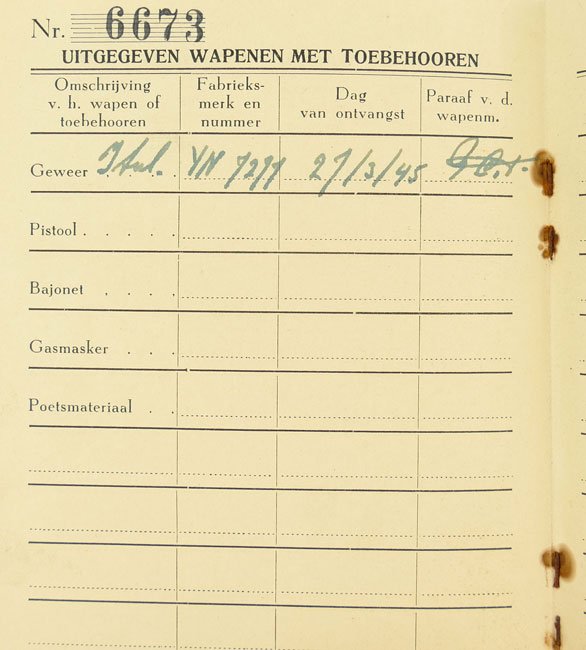 Nr. 6673
UITGEGEVEN WAPENEN MET TOEBEHOOREN
Omschrijving v. h. wapen of toebehooren
Fabrieksmerk en nummer
Dag van ontvangst
Paraaf v. d. wapenm.
Geweer Ital. 27/3/45
Pistool . . . . .
Bajonet . . . .
Gasmasker . . .
Poetsmateriaal . .